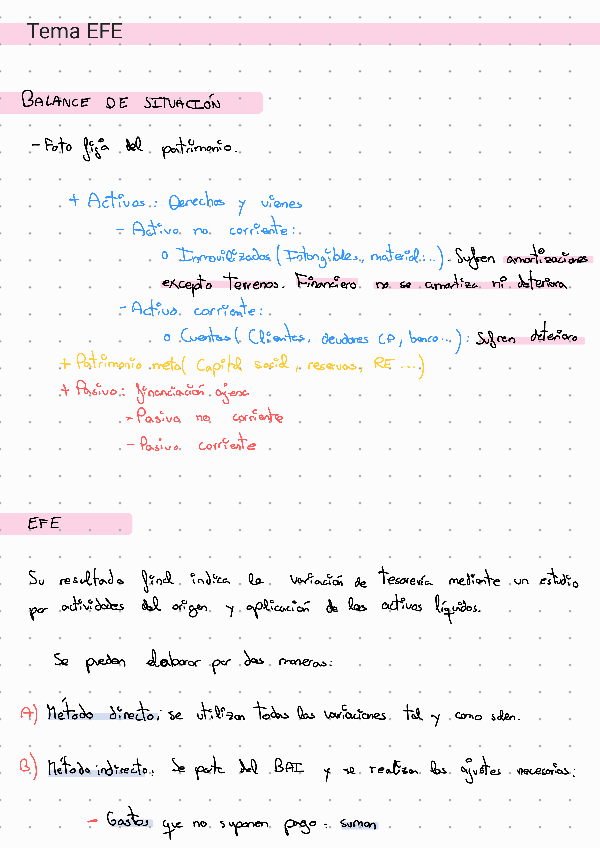 Tema EFE
BALANCE DE SITUACIÓN
- Foto fija del patrimonio.
+ Activos: Derechos y vienes
- Activo no corriente:
o Inmovilizados (Intangibles, material...). Sufren amortizaciones
excepto terrenos. Financiero no se amortiza ni deteriora.
- Activo corriente:
o Cuentas (Clientes, deudores CP, banco...): Sufren deterioro
+ Patrimonio neto (Capital social, reservas, RE ...)
+ Pasivo: financiación ajena
- Pasivo no corriente
- Pasivo corriente
EFE
Su resultado final indica la variación de tesorería mediante un estudio
por actividades del origen y aplicación de los activos líquidos.
Se pueden elaborar por dos maneras:
A) Método directo: se utilizan todas las variaciones tal y como salen.
B) Método indirecto: Se parte del BAI y se realizan los ajustes necesarios:
- Gastos que no suponen pago: suman